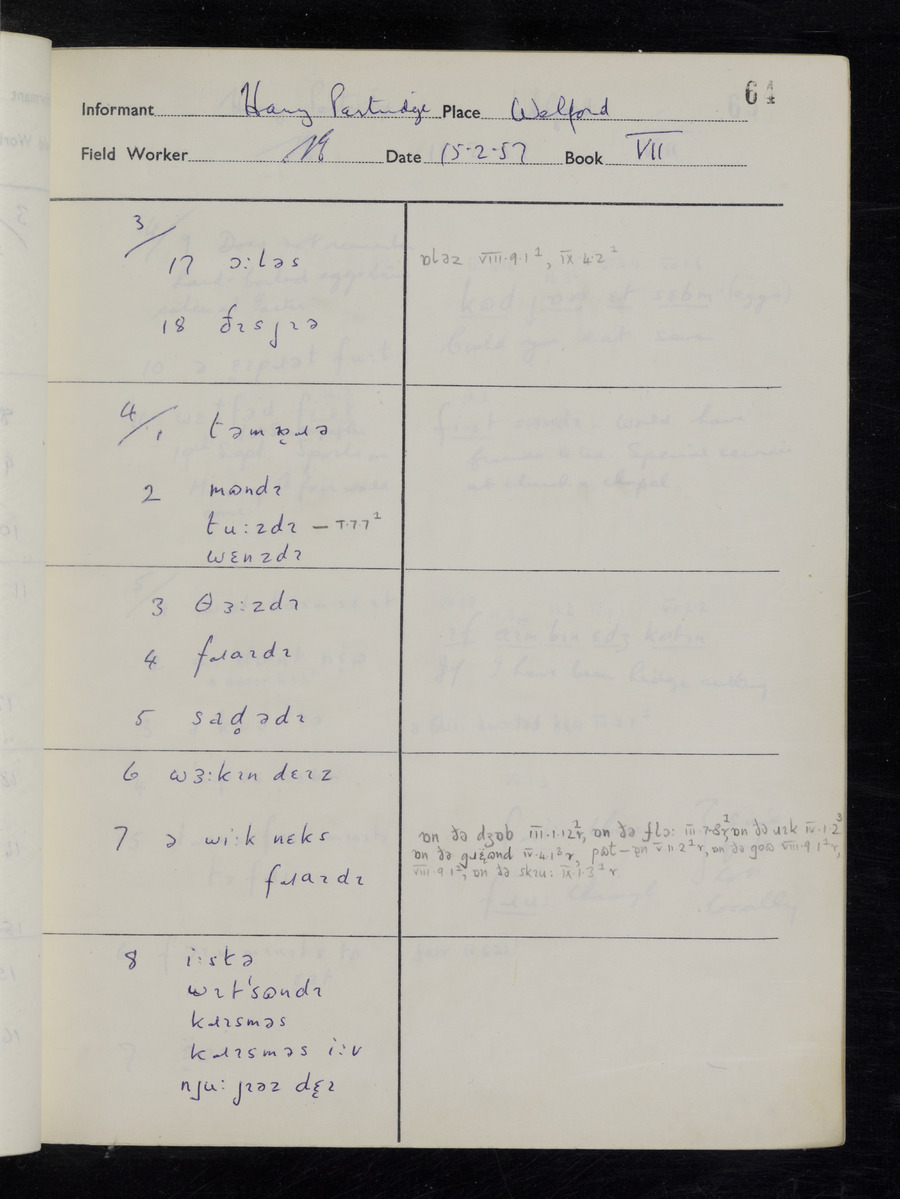 64
Informant Harry Partridge Place Welford
Field Worker Date 15·2·57 Book VII
3/
17 ɔ:ləs ɒləz VIII·9·1², IX·4·2²
18 ðɪsjɪə
4/1 təmɒ̣ɹə
2 mɷndɪ
tu:zdɪ — T·7·7²
wɛnzdɪ
3 θɜ:zdɪ
4 fɹaɪdɪ
5 sad̥ədɪ
6 wɜ:kɪn dɛɪz
7 ə wi:k nɛks
fɹaɪdɪ
ɒn ðə dʒɒb III·1·12²r, ɒn ðə flɔ: III·7·8²r, ɒn ðə ɹɪk IV·1·2³
ɒn ðə gɹɛɷnd IV·4·1³r, pɷt–ɒn V·11·2²r, ɒn ðə goɷ VIII·9·1²r,
VIII·9·1², ɒn ðə skɪu: IX·1·3²r
8 i:stə
wɪt'sɷndɪ
kɹɪsməs
kɹɪsməs i:v
nju: jɪəz dɛ̣ɪ